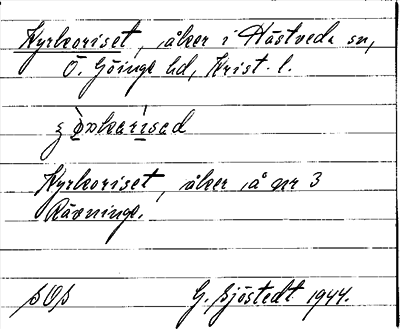 Kyrkoriset, åker i Hästveda sn,
Ö. Göinge hd, Krist. l.
Kyrkoriset, åker å nr 3
Rävninge.
SOS G. Sjöstedt 1944.